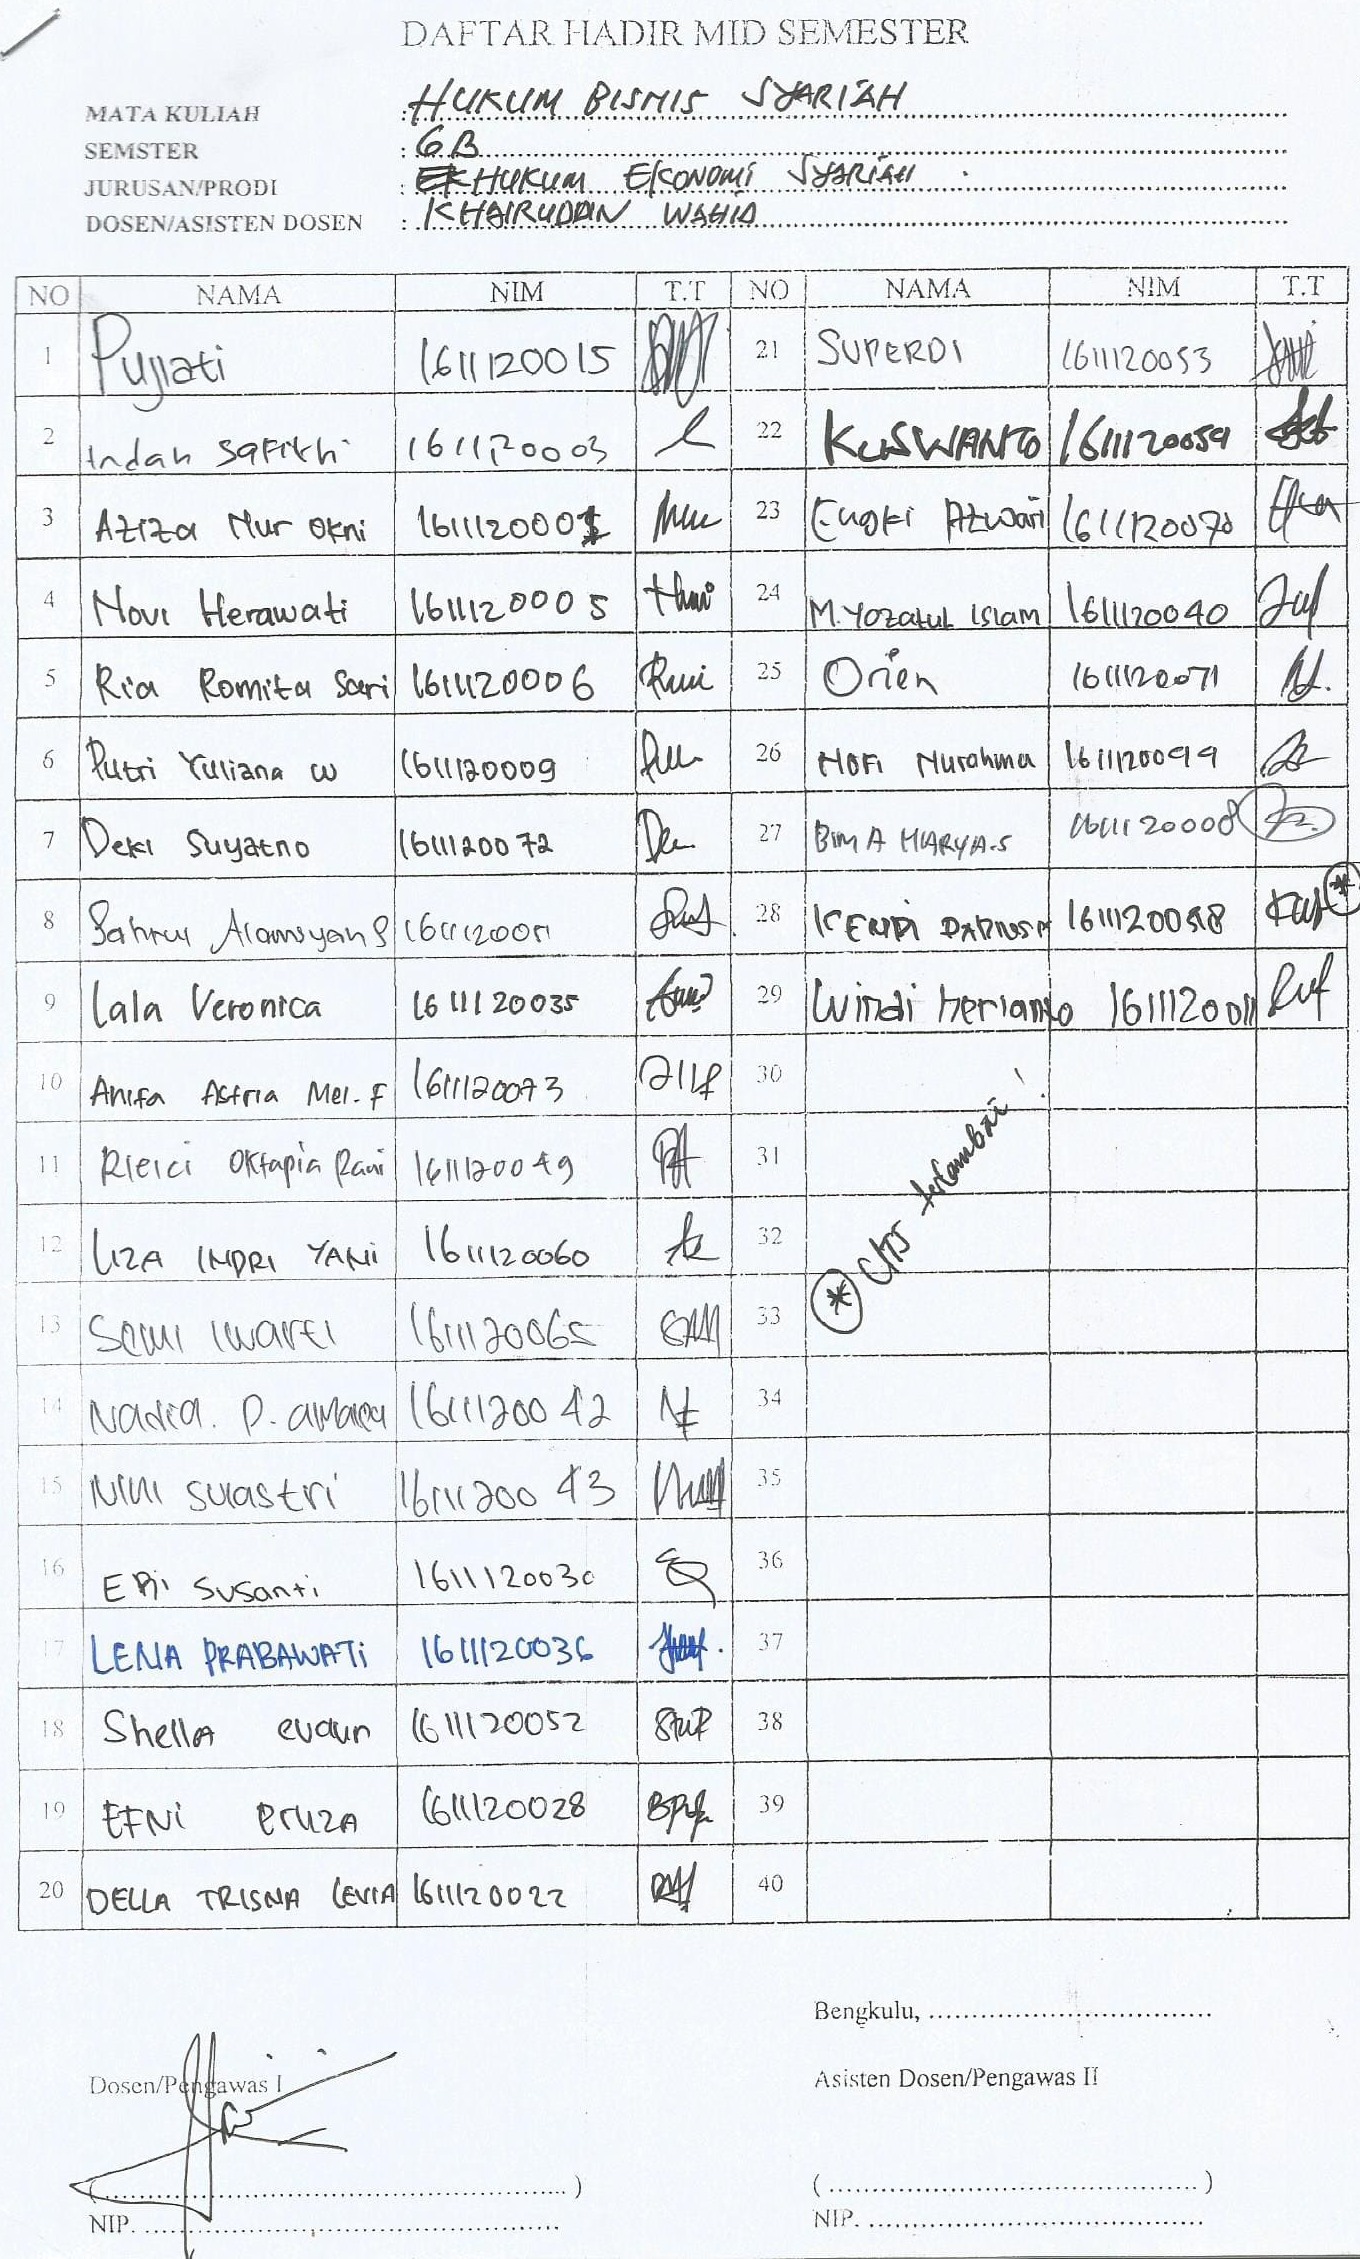 DAFTAR HADIR MID SEMESTER
MATA KULIAH : HUKUM BISNIS SYARIAH
SEMSTER : 6 B
JURUSAN/PRODI : HUKUM EKONOMI SYARIAH
DOSEN/ASISTEN DOSEN : KHAIRUDDIN WAHID
NO NAMA NIM T.T NO NAMA NIM T.T
1 Pujiati 1611120015 21 SUPERDI 1611120053
2 Indah Safitri 1611120003 22 KUSWANTO 1611120059
3 Aziza Nur Okni 161112000 23 Engki Azwari 1611120070
4 Novi Herawati 1611120005 24 M. Yozatul Islam 1611120040
5 Ria Romita Sari 1611120006 25 Orien 1611120071
6 Putri Yuliana W 1611120009 26 Nofi Nurohma 1611120099
7 Deki Suyatno 1611120072 27 BIMA HARYA.S 1611120008
8 Alamsyah S 28
9 Lala Veronica 1611120035 29 Windi Herianto
10 Anifa Astria Mei. F 1611120073 30
11 Oktapia 1611120049 31
12 LIZA INDRI YANI 1611120060 32
* UTS terlambat!
13 1611120065 33
14 Nadia. P. 1611120042 34
15 Nini Suiastri 1611120043 35
16 Susanti 1611120030 36
17 LENA PRABAWATI 1611120036 37
18 ShellA 1611120052 38
19 EFNi 1611120028 39
20 DELLA TRISNA LEVIA 1611120022 40
Bengkulu, ................................
Dosen/Pengawas I Asisten Dosen/Pengawas II
(..................................................) (..................................................)
NIP. .................................................. NIP. ..................................................